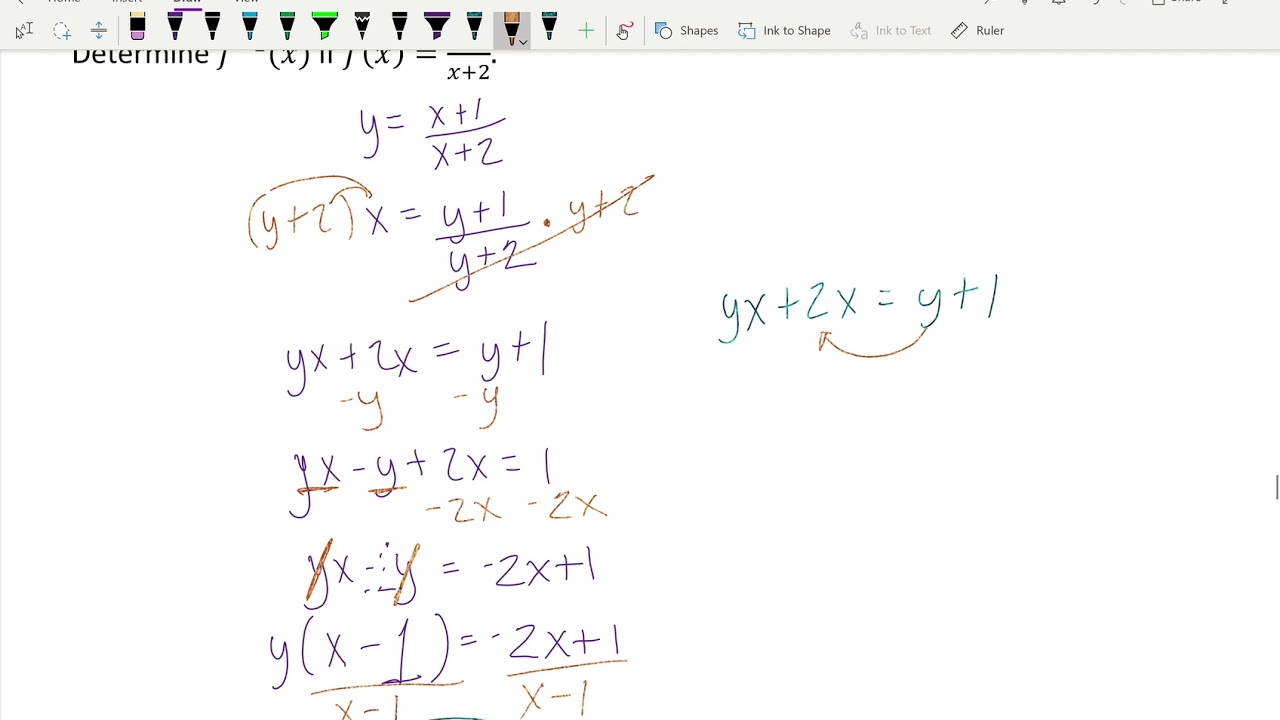 Shapes Ink to Shape Ink to Text Ruler
Determine f⁻¹(x) if f(x) = /x+2.
y = x+1/x+2
(y+2) x = y+1/y+2 · y+2
yx + 2x = y + 1
yx + 2x = y + 1
-y -y
yx - y + 2x = 1
-2x -2x
yx - y = -2x + 1
y(x - 1) = -2x + 1
x - 1 x - 1